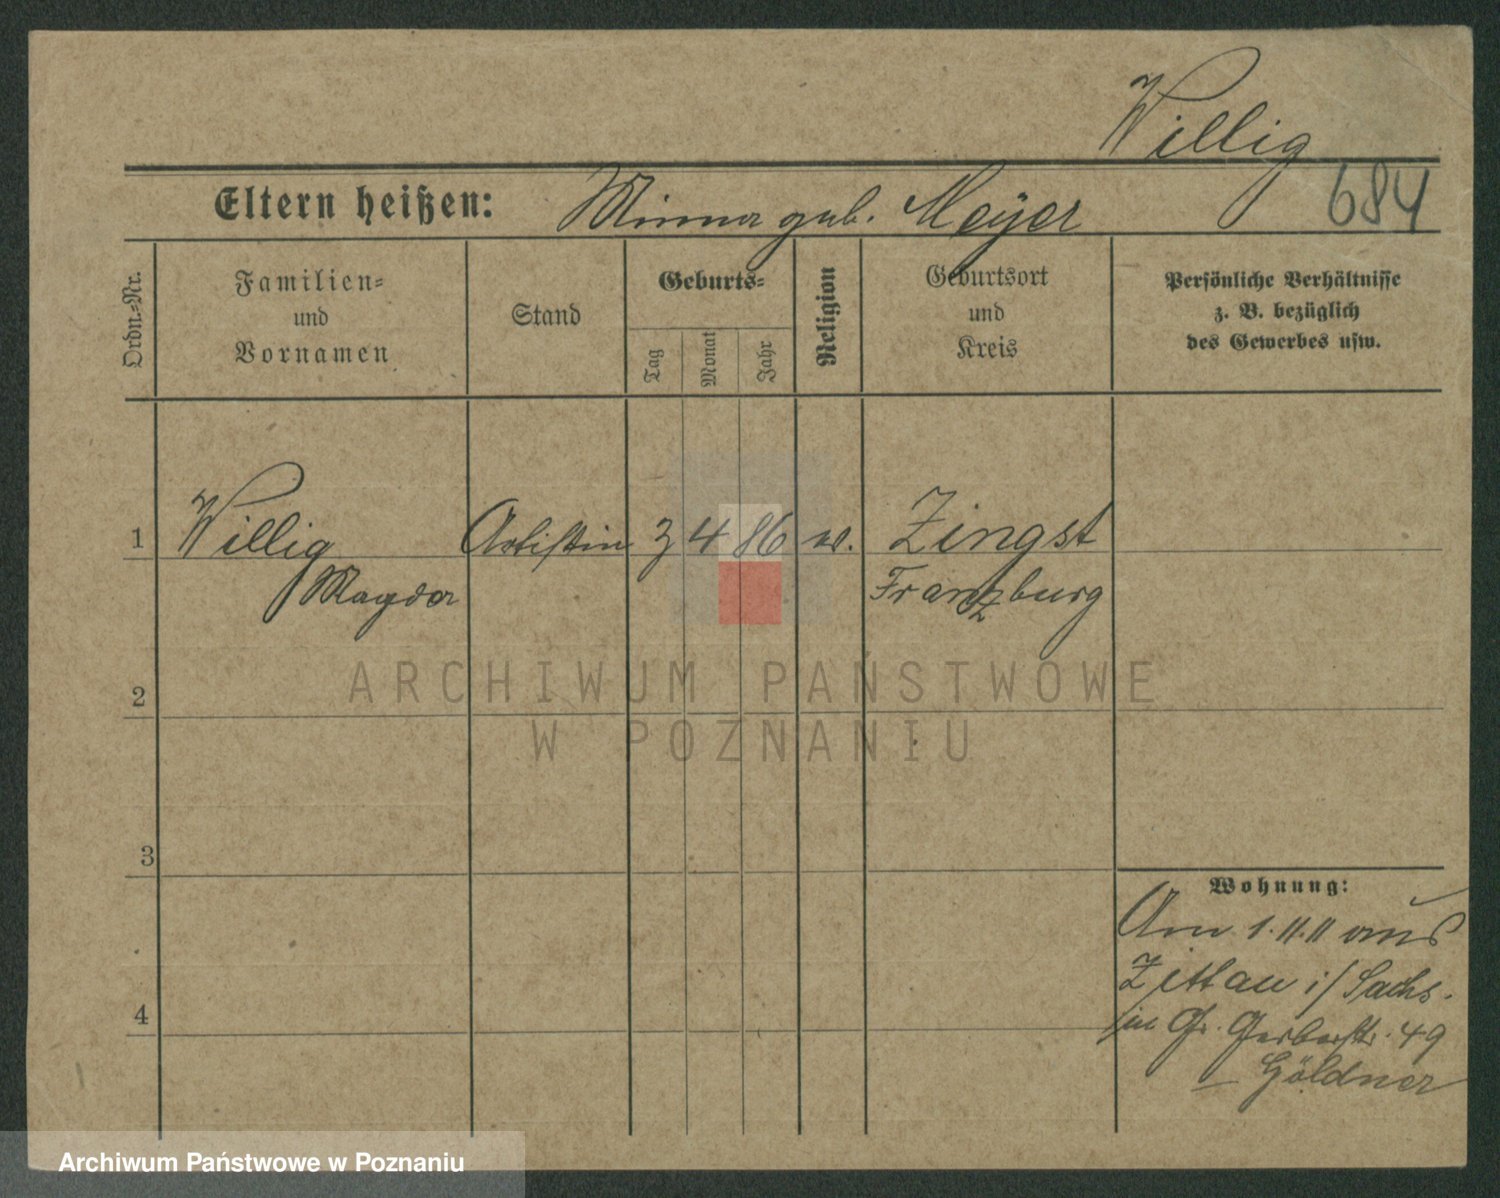 Willig
Eltern heißen: Minna geb. Meyer 684
Ordn.-Nr.
Familien- und Vornamen
Stand
Geburts-
Tag
Monat
Jahr
Religion
Geburtsort und Kreis
Persönliche Verhältnisse z. B. bezüglich des Gewerbes usw.
1 Willig Artistin 3 4 86 Zingst
Magda Franzburg
2
3
4
Wohnung:
Am 1.11.11 aus
Zittau i/Sachs.
in Gr. Gerberstr. 49
– Göldner
ARCHIWUM PAŃSTWOWE
W POZNANIU
Archiwum Państwowe w Poznaniu